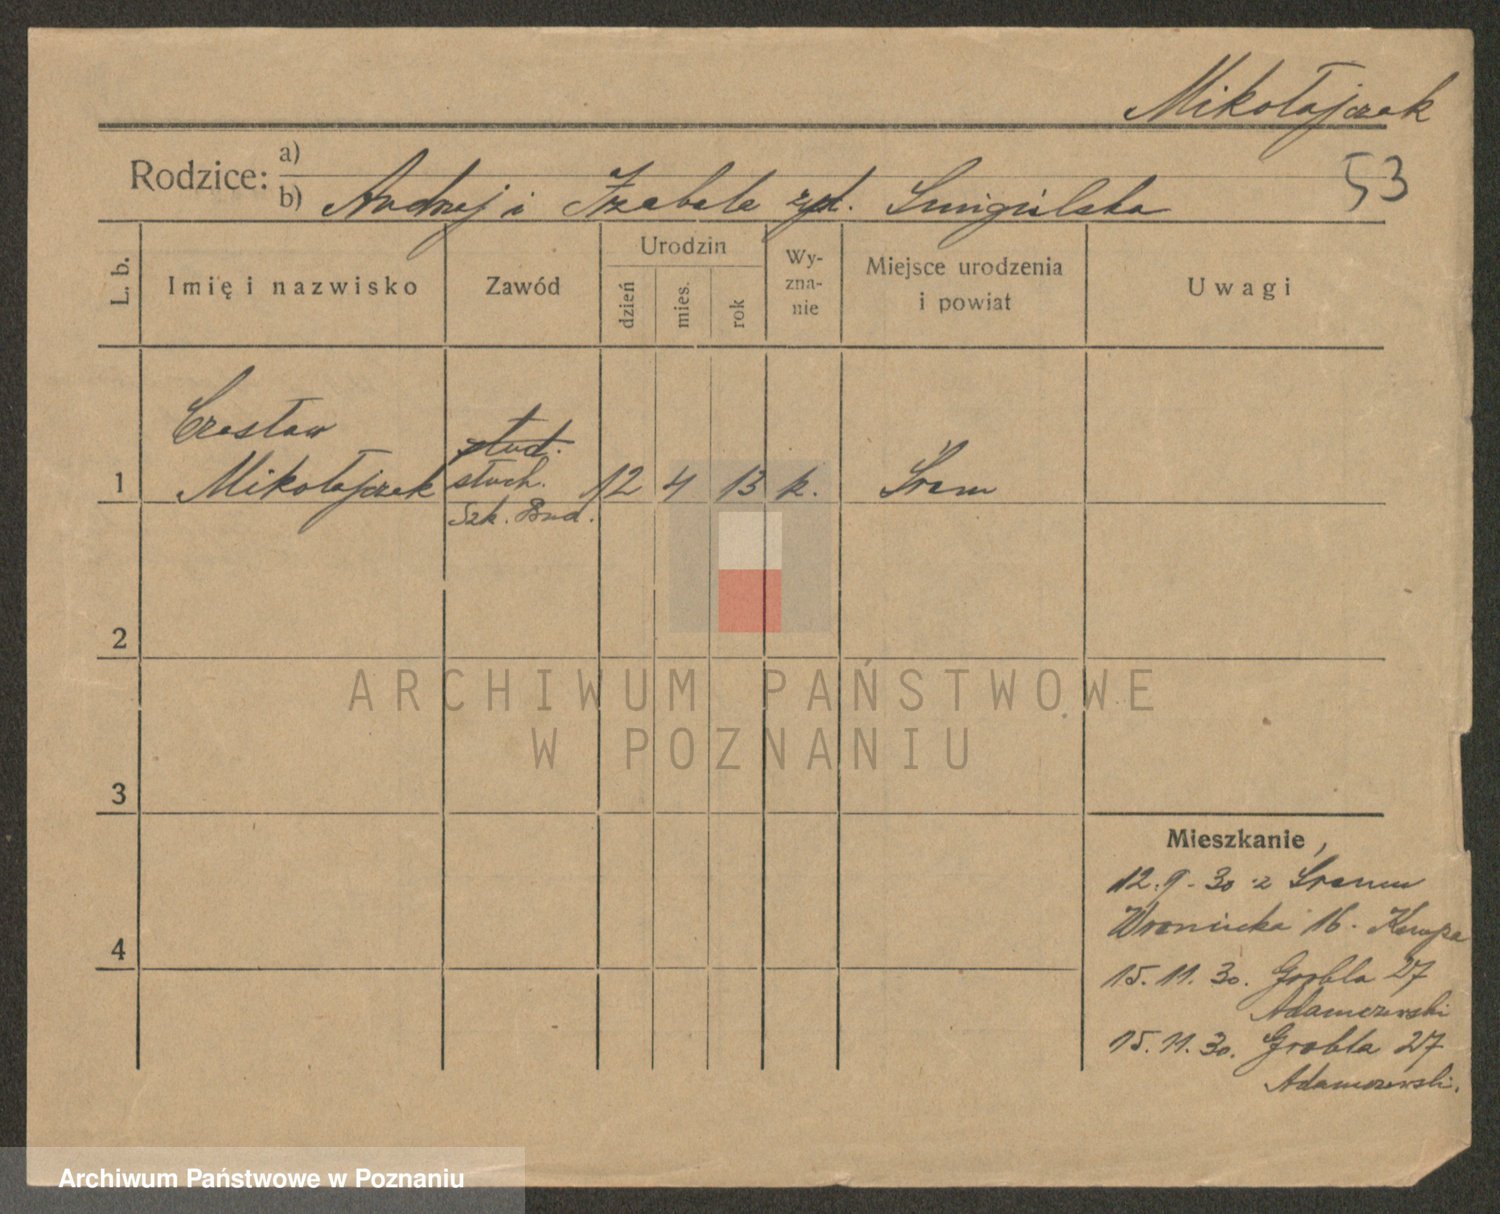 Mikołajczak
53
Rodzice:
a)
b) Andrzej i Izabela zd. Śmigielska
L. b.
Imię i nazwisko
Zawód
Urodzin
dzień
mies.
rok
Wy-
zna-
nie
Miejsce urodzenia
i powiat
Uwagi
Czesław
stud.
1 Mikołajczak słuch. 12 4 13 k. Śrem
Szk. Bud.
2
3
4
Mieszkanie
12. 9. 30 z Śremu
Wroniecka 16.
15. 11. 30. Grobla 27
Adamczewski
15. 11. 30. Grobla 27
Adamczewski.
ARCHIWUM PAŃSTWOWE
W POZNANIU
Archiwum Państwowe w Poznaniu